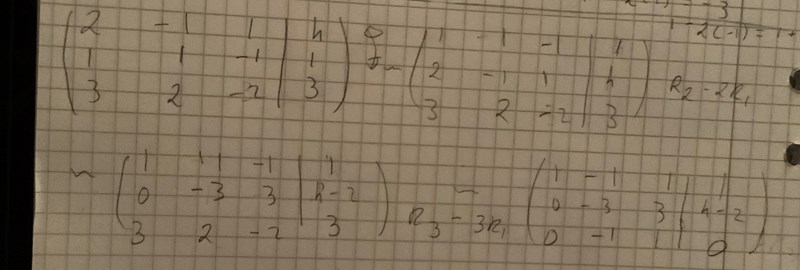 = -3
-2(-1) = 1+
2 -1 1 | h
1 1 -1 | 1
3 2 -2 | 3
~
1 -1 -1 | 1
2 -1 1 | h
3 2 -2 | 3
R2 - 2R1
~
1 1 -1 | 1
0 -3 3 | h-2
3 2 -2 | 3
R3 - 3R1
~
1 -1 1 | 1
0 -3 3 | h-2
0 -1 1 | 0